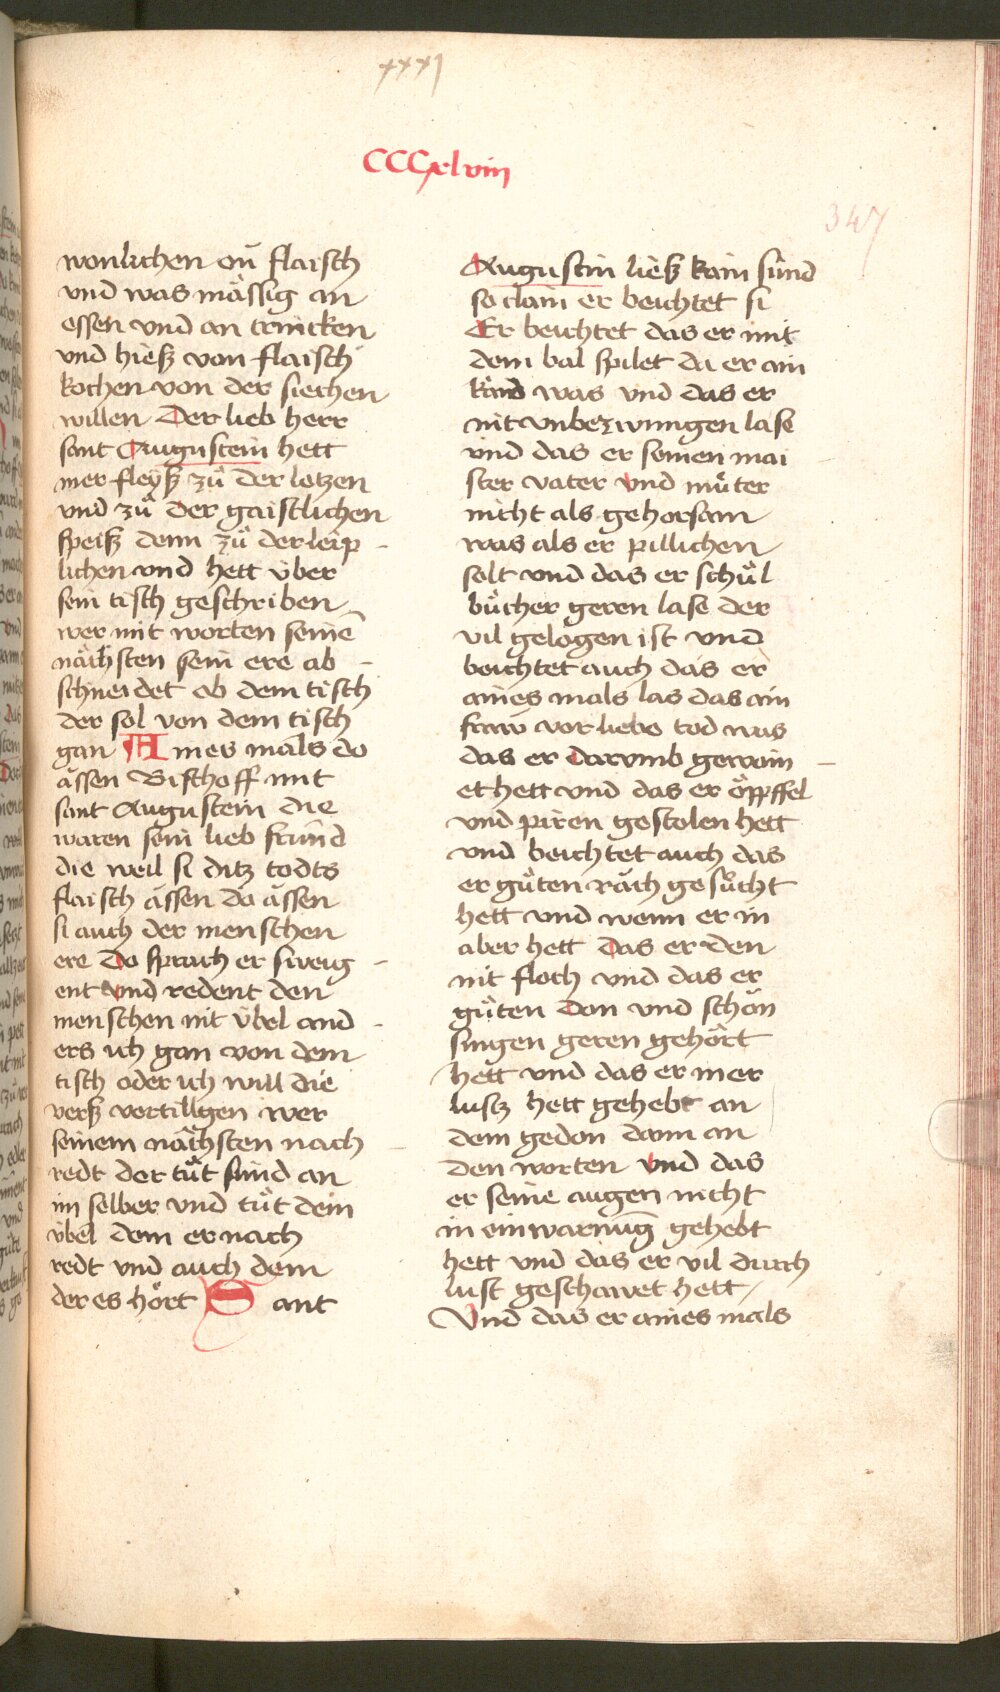 xxxj
CCCxlviij
347
wonlichen on flaisch
vnd was mässig an
essen vnd an trincken
vnd hieß von flaisch
kochen von der siechen
willen Der lieb herr
sant Augustein hett
mer fleyß zů der letzen
vnd zů der gaistlichen
speiß denn zů der leip
lichen vnd hett über
sein tisch geschriben
wer mit worten seinē
nächsten sein ere ab
schneidet ob dem tisch
der sol von dem tisch
gan Aines mals do
ässen Bischoff mit
sant Augustein die
waren sein lieb fraind
die weil si ditz todts
flaisch ässen da ässen
si auch der menschen
ere Do sprach er sweig
ent vnd redent den
menschen nit übel and
ers ich gan von dem
tisch oder ich will die
verß vertillgen wer
seinem nächsten nach
redt der tůt sünd an
im selber vnd tůt dem
übel dem er nach
redt vnd auch dem
der es hört Sant
Augustin ließ kain sünd
so clain er beichtet si
Er beichtet das er mit
dem bal spilet da er ain
kind was vnd das er
nit vnbezwungen lase
vnd das er seinen mai
ster vater vnd můter
nicht als gehorsam
was als er pillichen
solt vnd das er schůl
bůcher geren lase der
vil gelogen ist vnd
beichtet auch das er
aines mals las das ain
fraw vor liebe tod was
das er darumb gewain
et hett vnd das er öppffel
vnd piren gestolen hett
vnd beichtet auch das
er gůten räch gesůcht
hett vnd wenn er in
aber hett Das er den
nit floch vnd das er
gůten Don vnd schön
singen geren gehört
hett vnd das er mer
lustz hett gehebt an
dem gedon dann an
den worten vnd das
er seine augen nicht
in ein warnūg gehebt
hett vnd das er vil durch
lust geschawet hett
Vnd das er aines mals